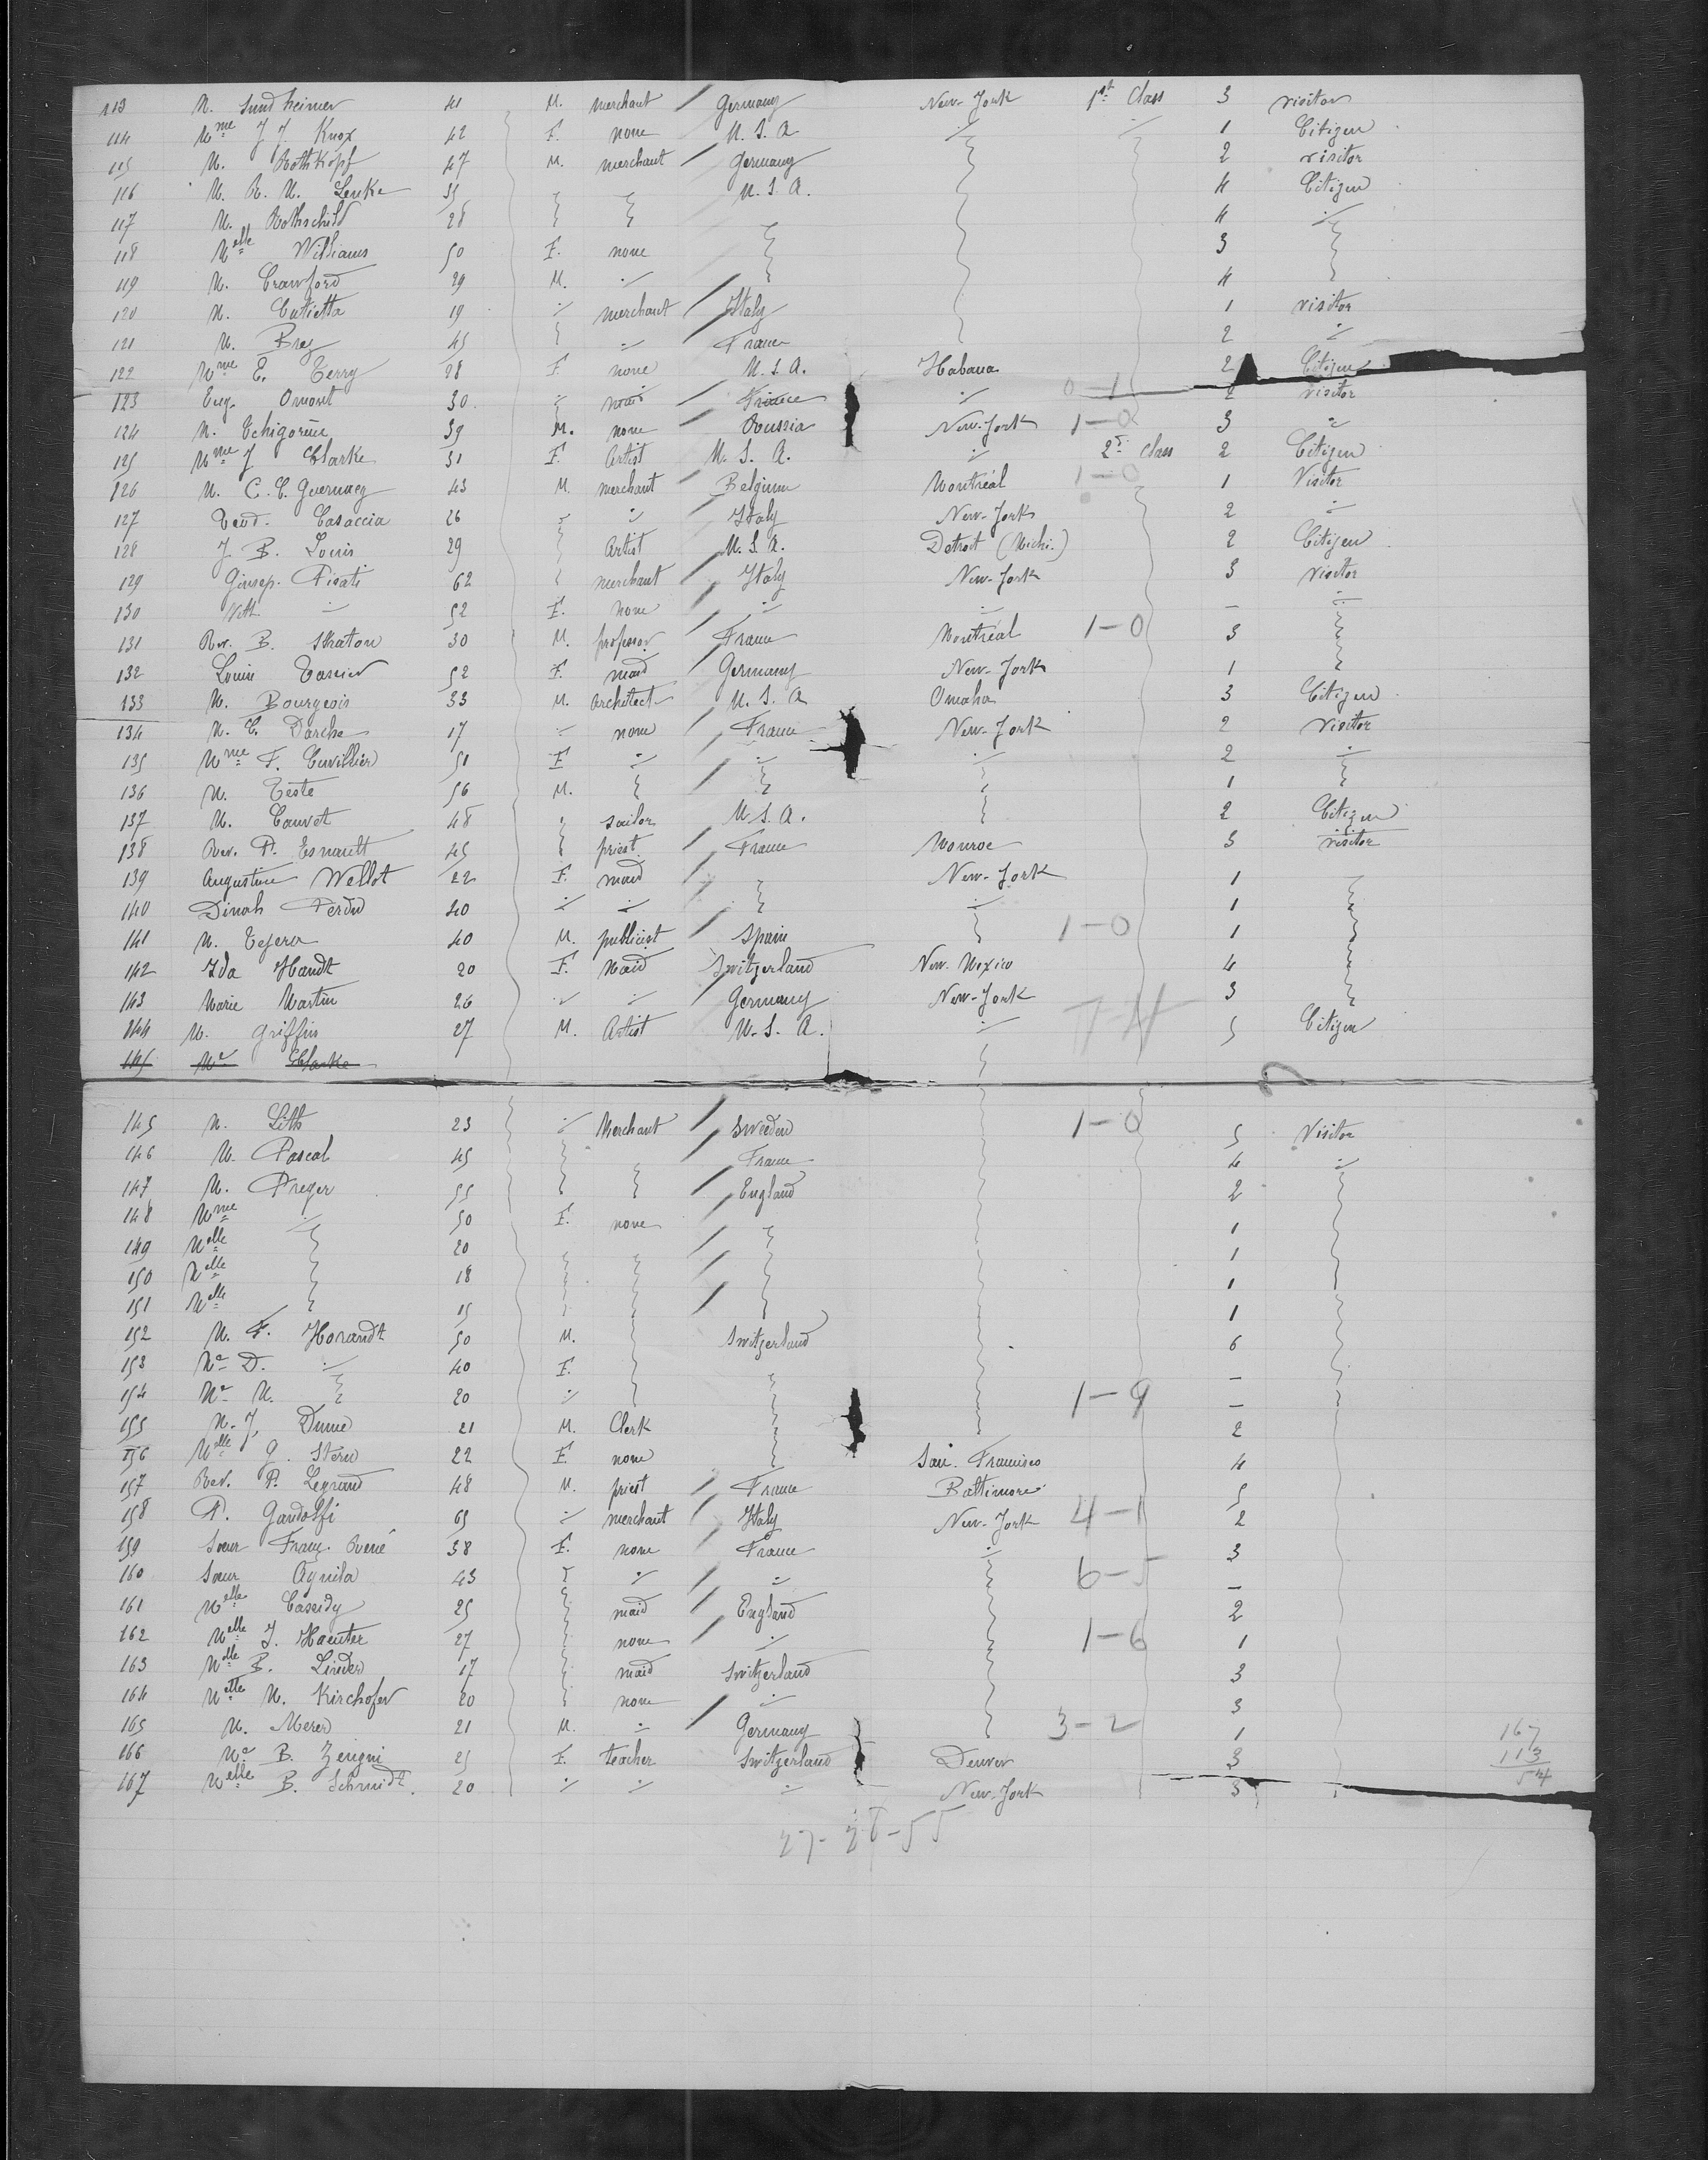 113 M. Sundheimer 41 M. merchant Germany New-York 1st Class 3 visitor
114 Mme J J Knox 42 F. none U. S. A ./. ./. 1 Citizen
115 M. Rothkopf 47 M. merchant Germany 2 visitor
116 M. R. M. Lenke 35 U. S. A. 4 Citizen
117 M. Rothschild 28 4 ./.
118 Melle Williams 50 F. none 3
119 M. Crawford 29 M. ./. 4
120 M. Cutietta 19 ./. merchant Italy 1 visitor
121 M. Brez 45 ./. France 2 ./.
122 Mme E. Terry 28 F. none U. S. A. Habana 2 Citizen
123 Eug. Omont 30 ./. maid France ./. 0-1 2 visitor
124 M. Tchigorine 39 M. none Russia New-York 1-0 3 ./.
125 Mme J Clarke 31 F. Artist U. S. A. ./. 2d Class 2 Citizen
126 M. C. E. Guernaey 43 M. merchant Belgium Montréal 1-0 1 Visitor
127 Casaccia 26 ./. ./. Italy New-York 2 ./.
128 J. B. Louis 29 Artist U. S. A. Detroit (Michi.) 2 Citizen
129 Giusep. Pisati 62 merchant Italy New-York 3 visitor
130 Vitt. ./. 52 F. none ./. ./. — ./.
131 Rev. B. Straton 30 M. professor France Montréal 1-0 3
132 Louise 52 F. maid Germany New-York 1
133 M. Bourgeois 33 M. Architect U. S. A Omaha 3 Citizen
134 M. E. Darche 17 ./. none France New-York 2 visitor
135 Mme F. Cuvillier 51 F ./. ./. ./. 2 ./.
136 M. Teste 56 M. 1
137 M. Cauvet 48 sailor U S. A. 2 Citizen
138 Rev. P. Esnault 45 priest France Monroe 3 visitor
139 Augustine Wellot 22 F. maid New-York 1
140 Dinah Perdu 40 ./. ./. ./. 1
141 M. Tejera 40 M. publicist Spain 1-0 1
142 Ida Handt 20 F. Maid Switzerland New-Mexico 4
143 Marie Martin 26 ./. ./. Germany New-York 3
144 M. Griffin 27 M. Artist U. S. A. ./. 7-4 5 Citizen
145 Me Clarke
145 M. Lith 23 ./. Merchant Sweden 1-0 5 Visitor
146 M. Pascal 45 France 4 ./.
147 M. Preger 55 England 2
148 Mme ./. 50 F. none 1
149 Melle 20 1
150 Melle 18 1
151 Melle 15 1
152 M. F. Horandt 50 M. Switzerland 6
153 Me D. ./. 40 F. —
154 Me M. 20 ./. 1-9 —
155 M. J. Dume 21 M. Clerk 2
156 Melle G. Stern 22 F. none San Francisco 4
157 Rev. P. Legrand 48 M. priest France Baltimore 5
158 P. Gandolfi 65 ./. merchant Italy New-York 4-1 2
159 Sœur Franç. René 38 F. none France ./. 3
160 Sœur Aquila 43 ./. ./. ./. 6-5 —
161 Melle Cassidy 25 maid England 2
162 Melle J. Haenter 27 none ./. 1-6 1
163 Melle B. Linder 17 maid Switzerland 3
164 Melle M. Kirchofer 20 none ./. 3
165 M. Merer 21 M. ./. Germany 3-2 1 167
166 Me B. Zeugni 25 F. teacher Switzerland Denver 3 113
167 Melle B. Schmidt. 20 ./. ./. ./. New-York 3 54
27-28-55